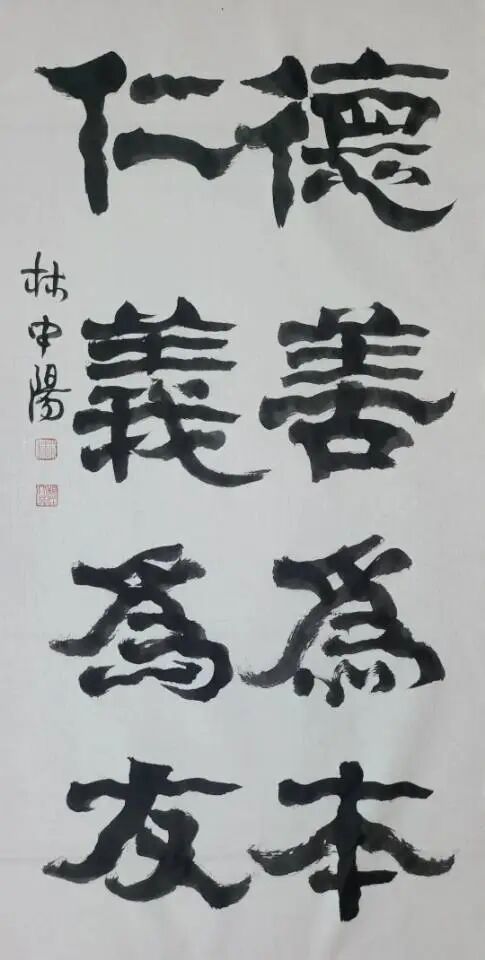 德善為本
仁義為友
林中陽